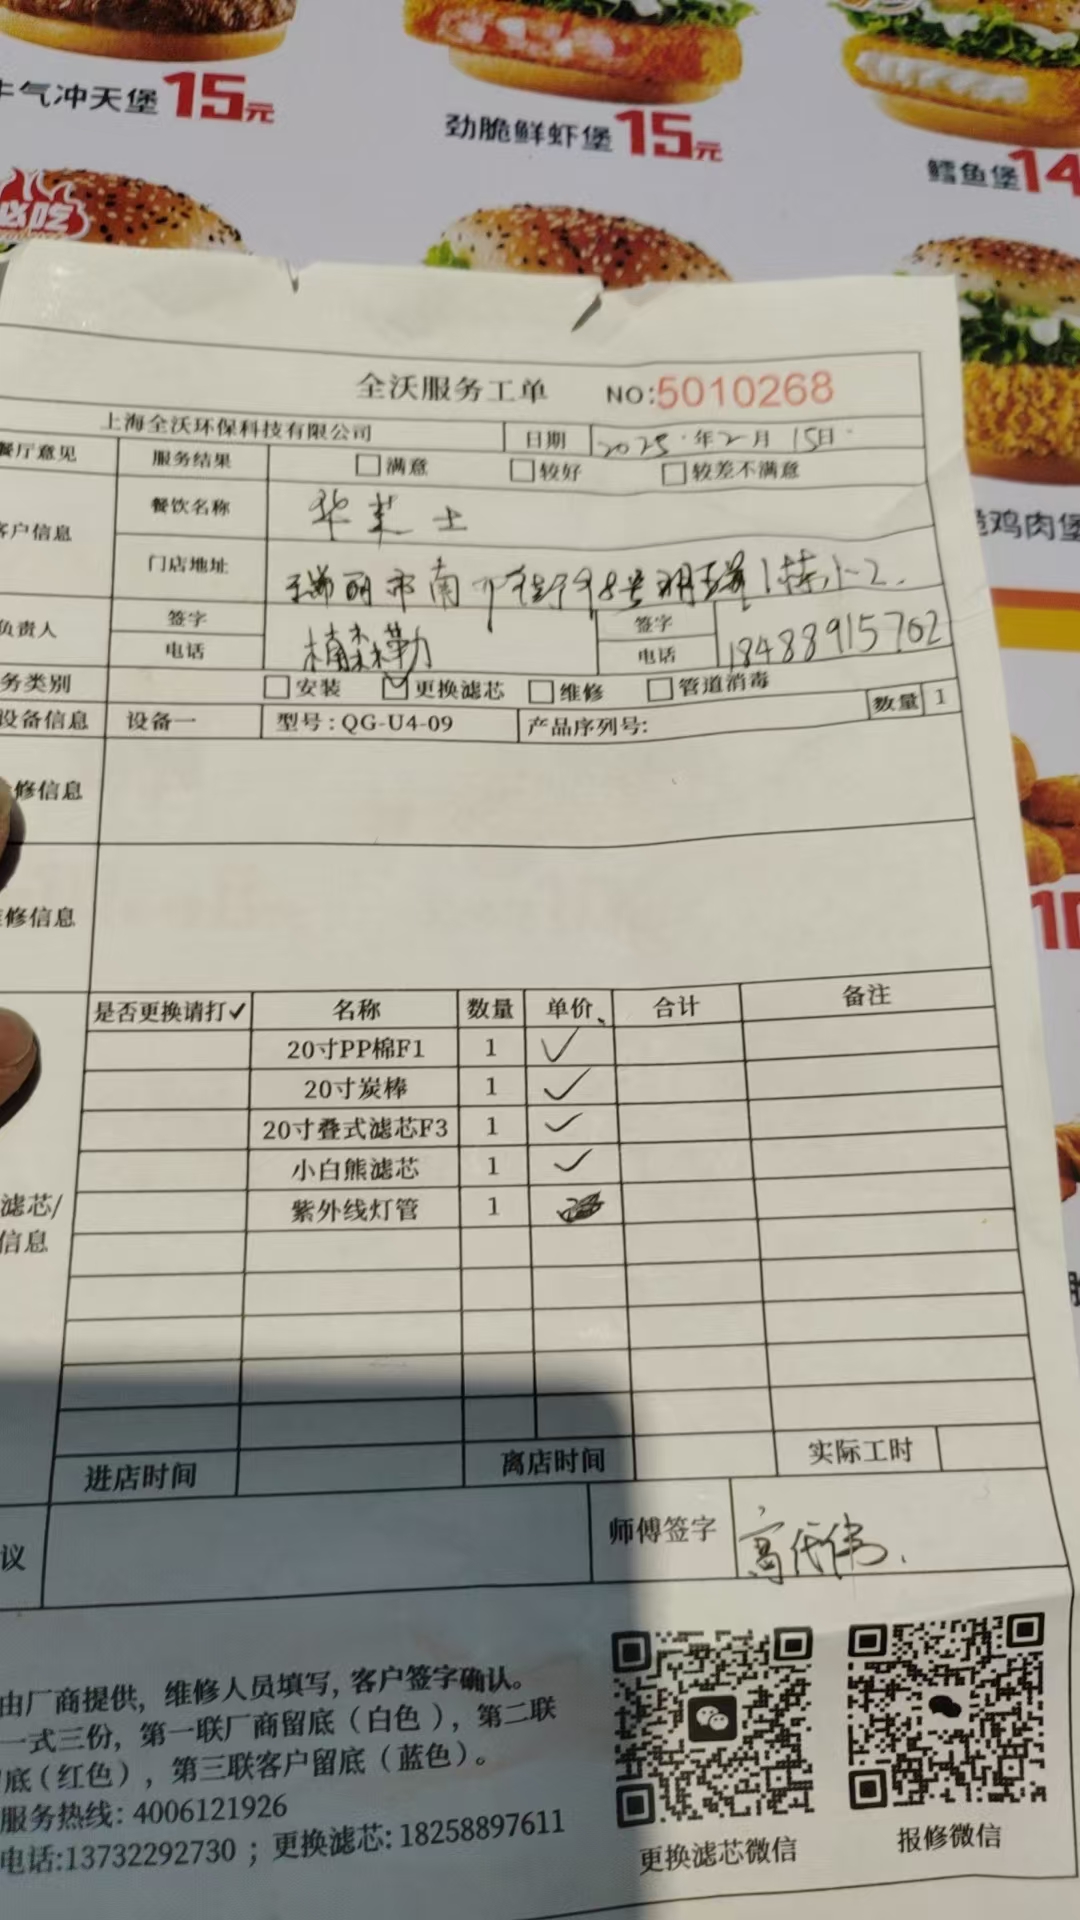 牛气冲天堡 15元
劲脆鲜虾堡 15元
鳕鱼堡 14
必吃
脆鸡肉堡
10
全沃服务工单 NO:5010268
上海全沃环保科技有限公司 日期 2025年2月15日
餐厅意见 服务结果 □满意 □较好 □较差不满意
客户信息 餐饮名称 华芝士
门店地址 瑞丽市南 街98号明瑞1栋1-2.
负责人 签字 签字
电话 电话 18488915762
务类别 □安装 ☑更换滤芯 □维修 □管道消毒
设备信息 设备一 型号:QG-U4-09 产品序列号: 数量 1
修信息
维修信息
是否更换请打✓ 名称 数量 单价 合计 备注
20寸PP棉F1 1 ✓
20寸炭棒 1 ✓
20寸叠式滤芯F3 1 ✓
小白熊滤芯 1 ✓
紫外线灯管 1
滤芯/
信息
进店时间 离店时间 实际工时
议 师傅签字 高代伟.
由厂商提供, 维修人员填写, 客户签字确认。
一式三份, 第一联厂商留底(白色), 第二联
底(红色), 第三联客户留底(蓝色)。
服务热线: 4006121926
电话:13732292730; 更换滤芯: 18258897611
更换滤芯微信 报修微信